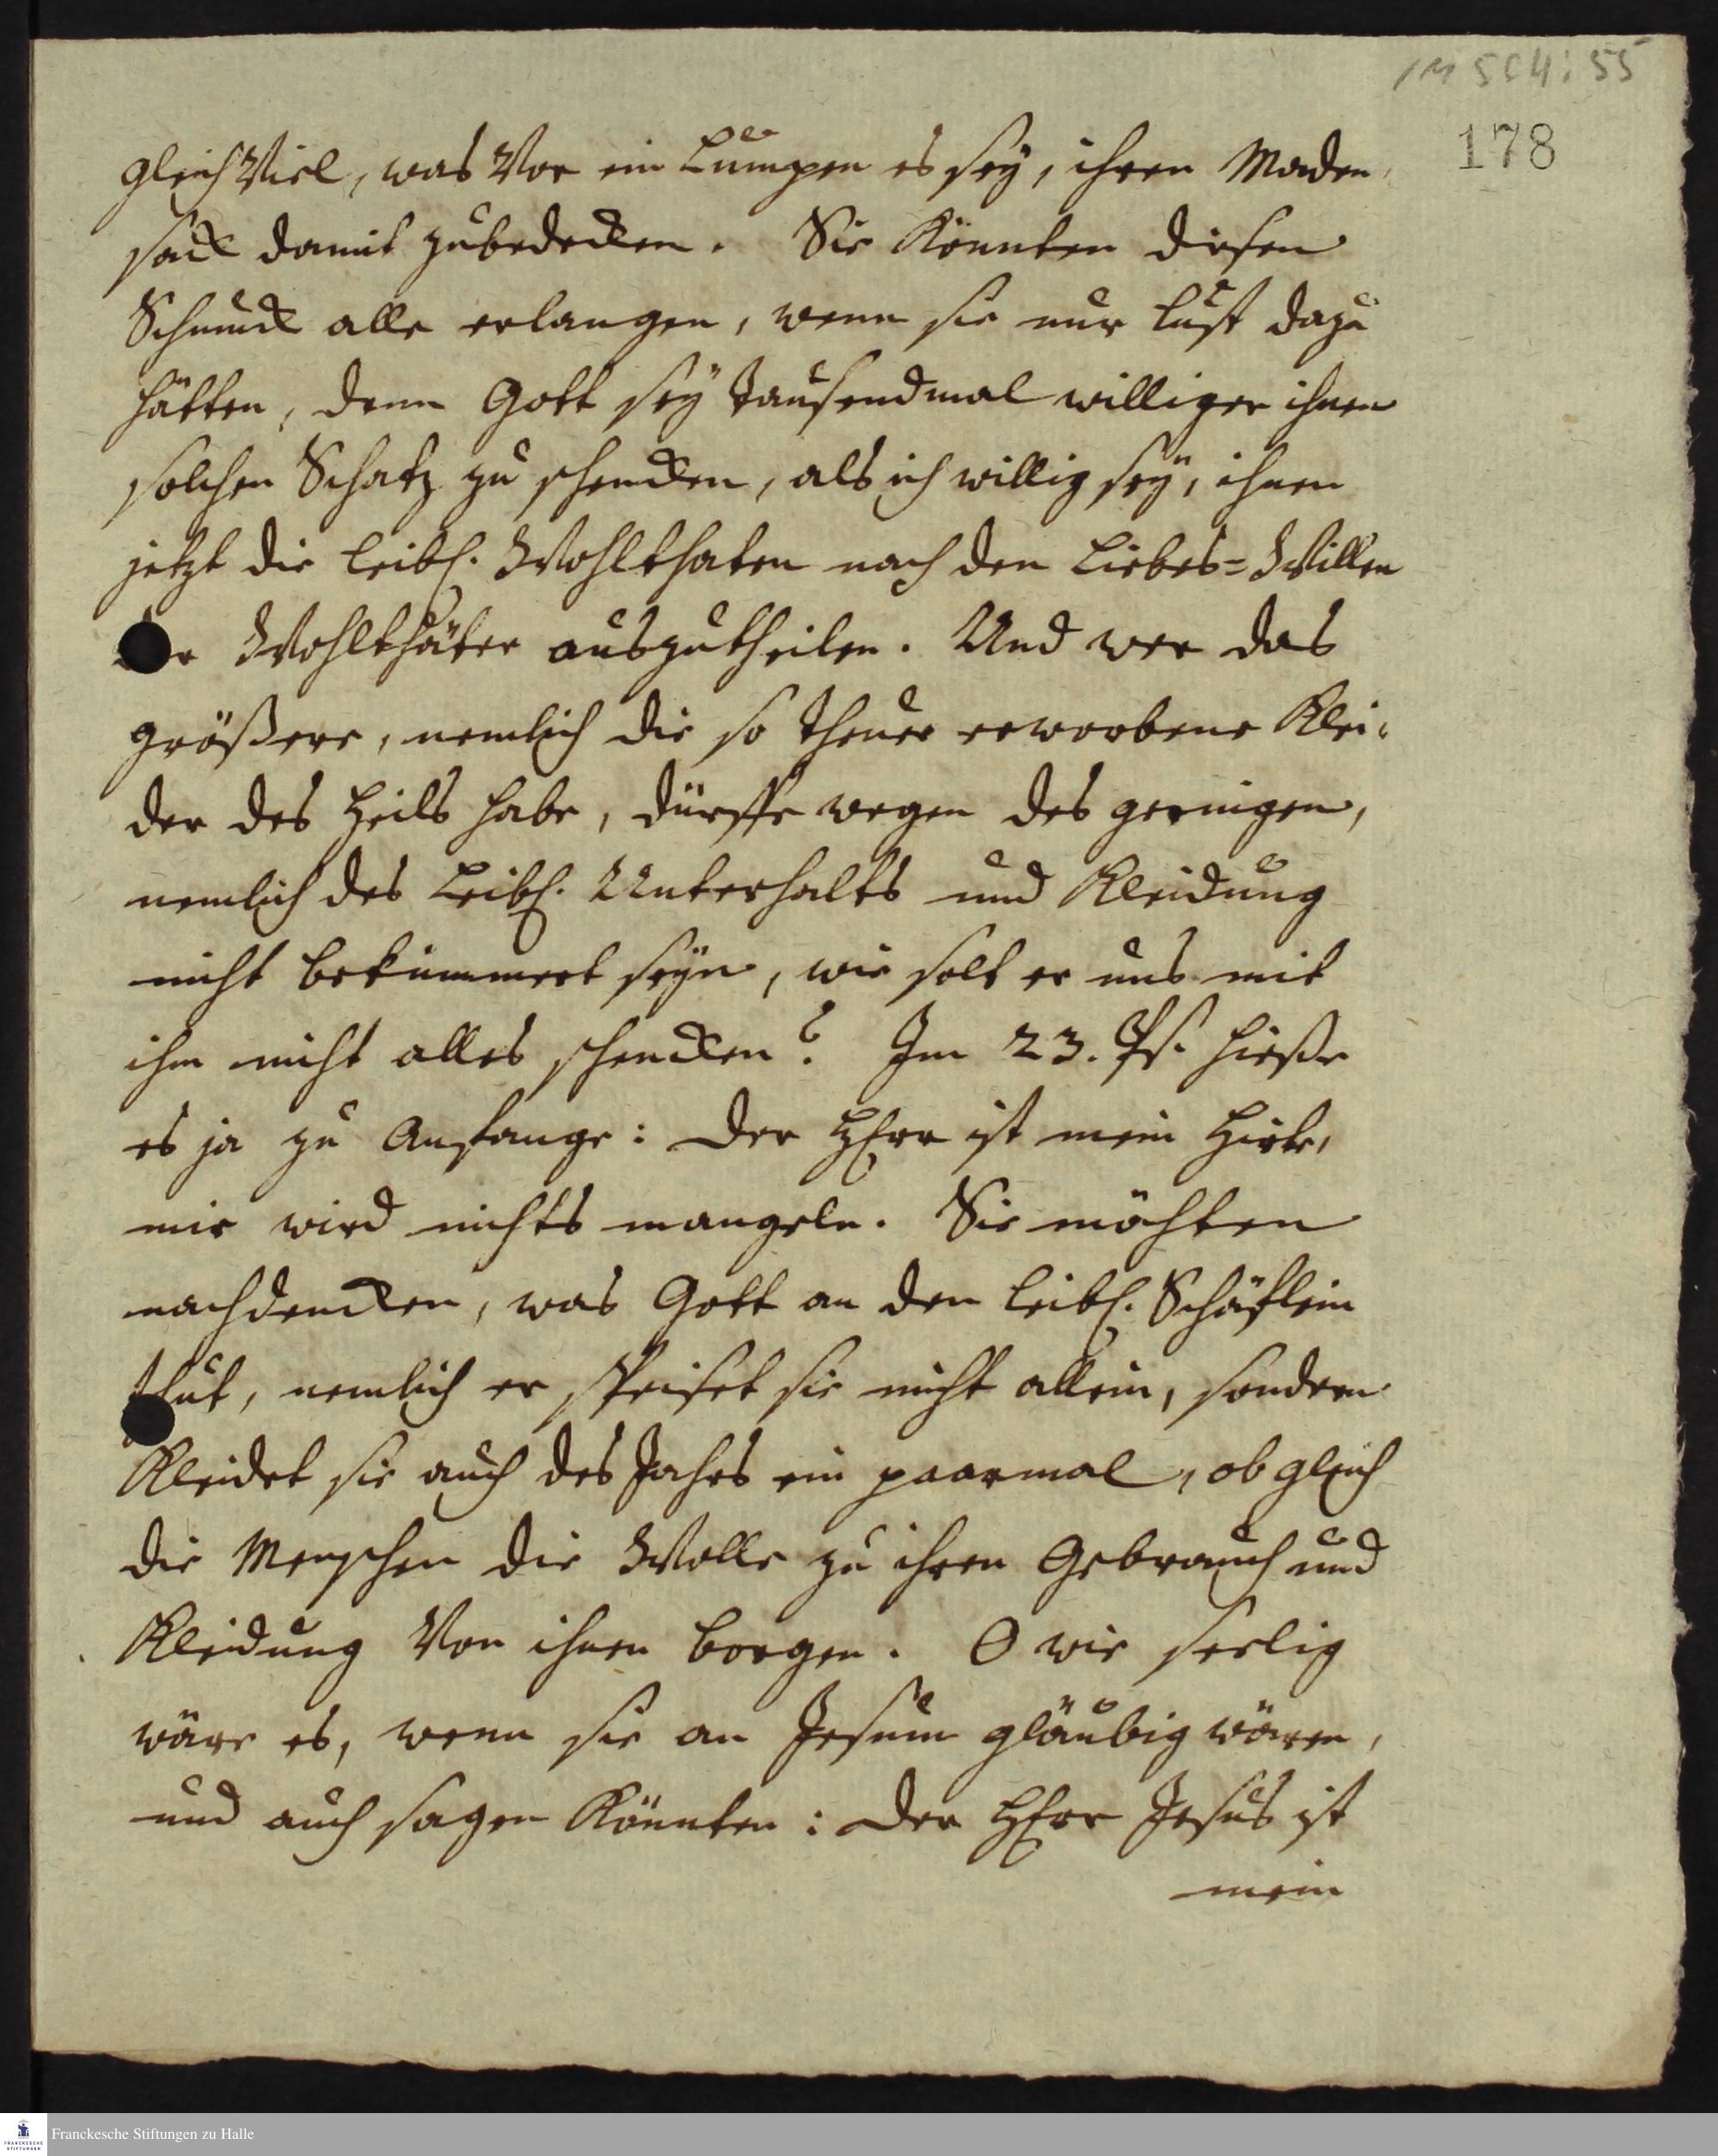 1M 5C4:55
178
gleich Viel, was Vor ein Lumpen es sey, ihren Maden-
sack damit zubedecken. Sie Könnten diesen
Schmuck alle erlangen, wenn sie nur Lust dazu
hätten, denn Gott sey tausendmal williger ihnen
solchen Schatz zu schencken, als ich willig sey, ihnen
jetzt die leibl. Wohlthaten nach den Liebes=Willen
der Wohlthäter auszutheilen. Und wer das
größere, nemlich die so theuer erworbene Klei-
der des Heils habe, dürffe wegen des geringen,
nemlich des Leibl. Unterhalts und Kleidung
nicht bekümmert seyn, wie solt er uns mit
ihm nicht alles schencken? Im 23. Ps. hieße
es ja zu Anfange: Der HErr ist mein Hirte,
mir wird nichts mangeln. Sie möchten
nachdencken, was Gott an den leibl. Schäflein
thut, nemlich er speiset sie nicht allein, sondern
Kleidet sie auch des Jahrs ein paarmal, ob gleich
die Menschen die Wolle zu ihren Gebrauch und
Kleidung Von ihnen borgen. O wie seelig
wäre es, wenn sie an Jesum gläubig wären,
und auch sagen Könnten: Der HErr Jesus ist
mein
FRANCKESCHE STIFTUNGEN
Franckesche Stiftungen zu Halle